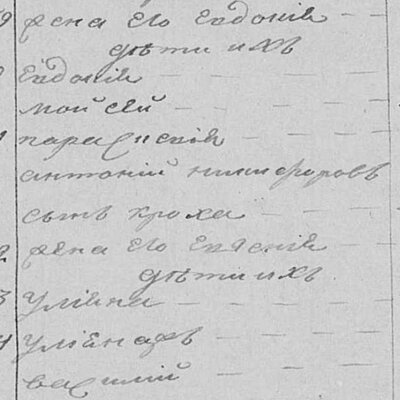 9 жена его Евдокія
дѣти ихъ
Евдокія
мойсей
параскевія
антоній никифоровъ
сынъ кроха
2 жена его Евгенія
дѣти ихъ
3 Уліяна
4 Уліянаже
василій